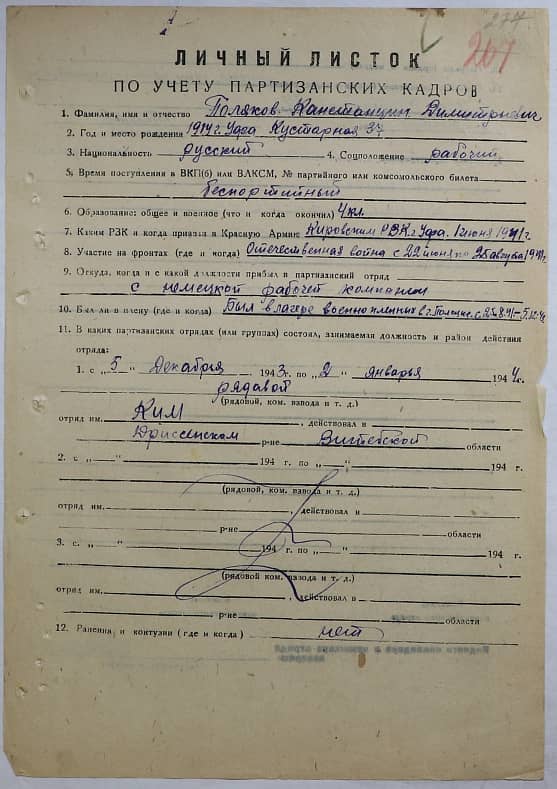 274
267
ЛИЧНЫЙ ЛИСТОК
ПО УЧЕТУ ПАРТИЗАНСКИХ КАДРОВ
1. Фамилия, имя и отчество Поляков Канстанцин Димитриевич
2. Год и место рождения 1917 г. Уфа Кустарная 37
3. Национальность русский 4. Соцположение рабочий
5. Время поступления в ВКП(б) или ВЛКСМ, № партийного или комсомольского билета
беспартийный
6. Образование: общее и военное (что и когда окончил) 4 кл.
7. Каким РЗК и когда призван в Красную Армию Кировским РВК г. Уфа. 1 июня 1941 г.
8. Участие на фронтах (где и когда) Отечественная война с 22 июня по 25 августа 1941 г.
9. Откуда, когда и с какой должности прибыл в партизанский отряд
с немецкой рабочей компании
10. Был ли в плену (где и когда) Был в лагере военнопленных в г.
11. В каких партизанских отрядах (или группах) состоял, занимаемая должность и район действия
отряда:
1. с „5“ Декабря 1943 г. по „2“ январья 1944 г.
рядавой
(рядовой, ком. взвода и т. д.)
отряд им. Ким, действовал в
Дриссенском р-не Витебской области
2. с „ “ 194 г. по „ “ 194 г.
(рядовой, ком. взвода и т. д.)
отряд им. , действовал в
р-не области
3. с „ “ 194 г. по „ “ 194 г.
(рядовой ком. взвода и т. д.)
отряд им. , действовал в
р-не области
12. Ранения и контузии (где и когда) нет